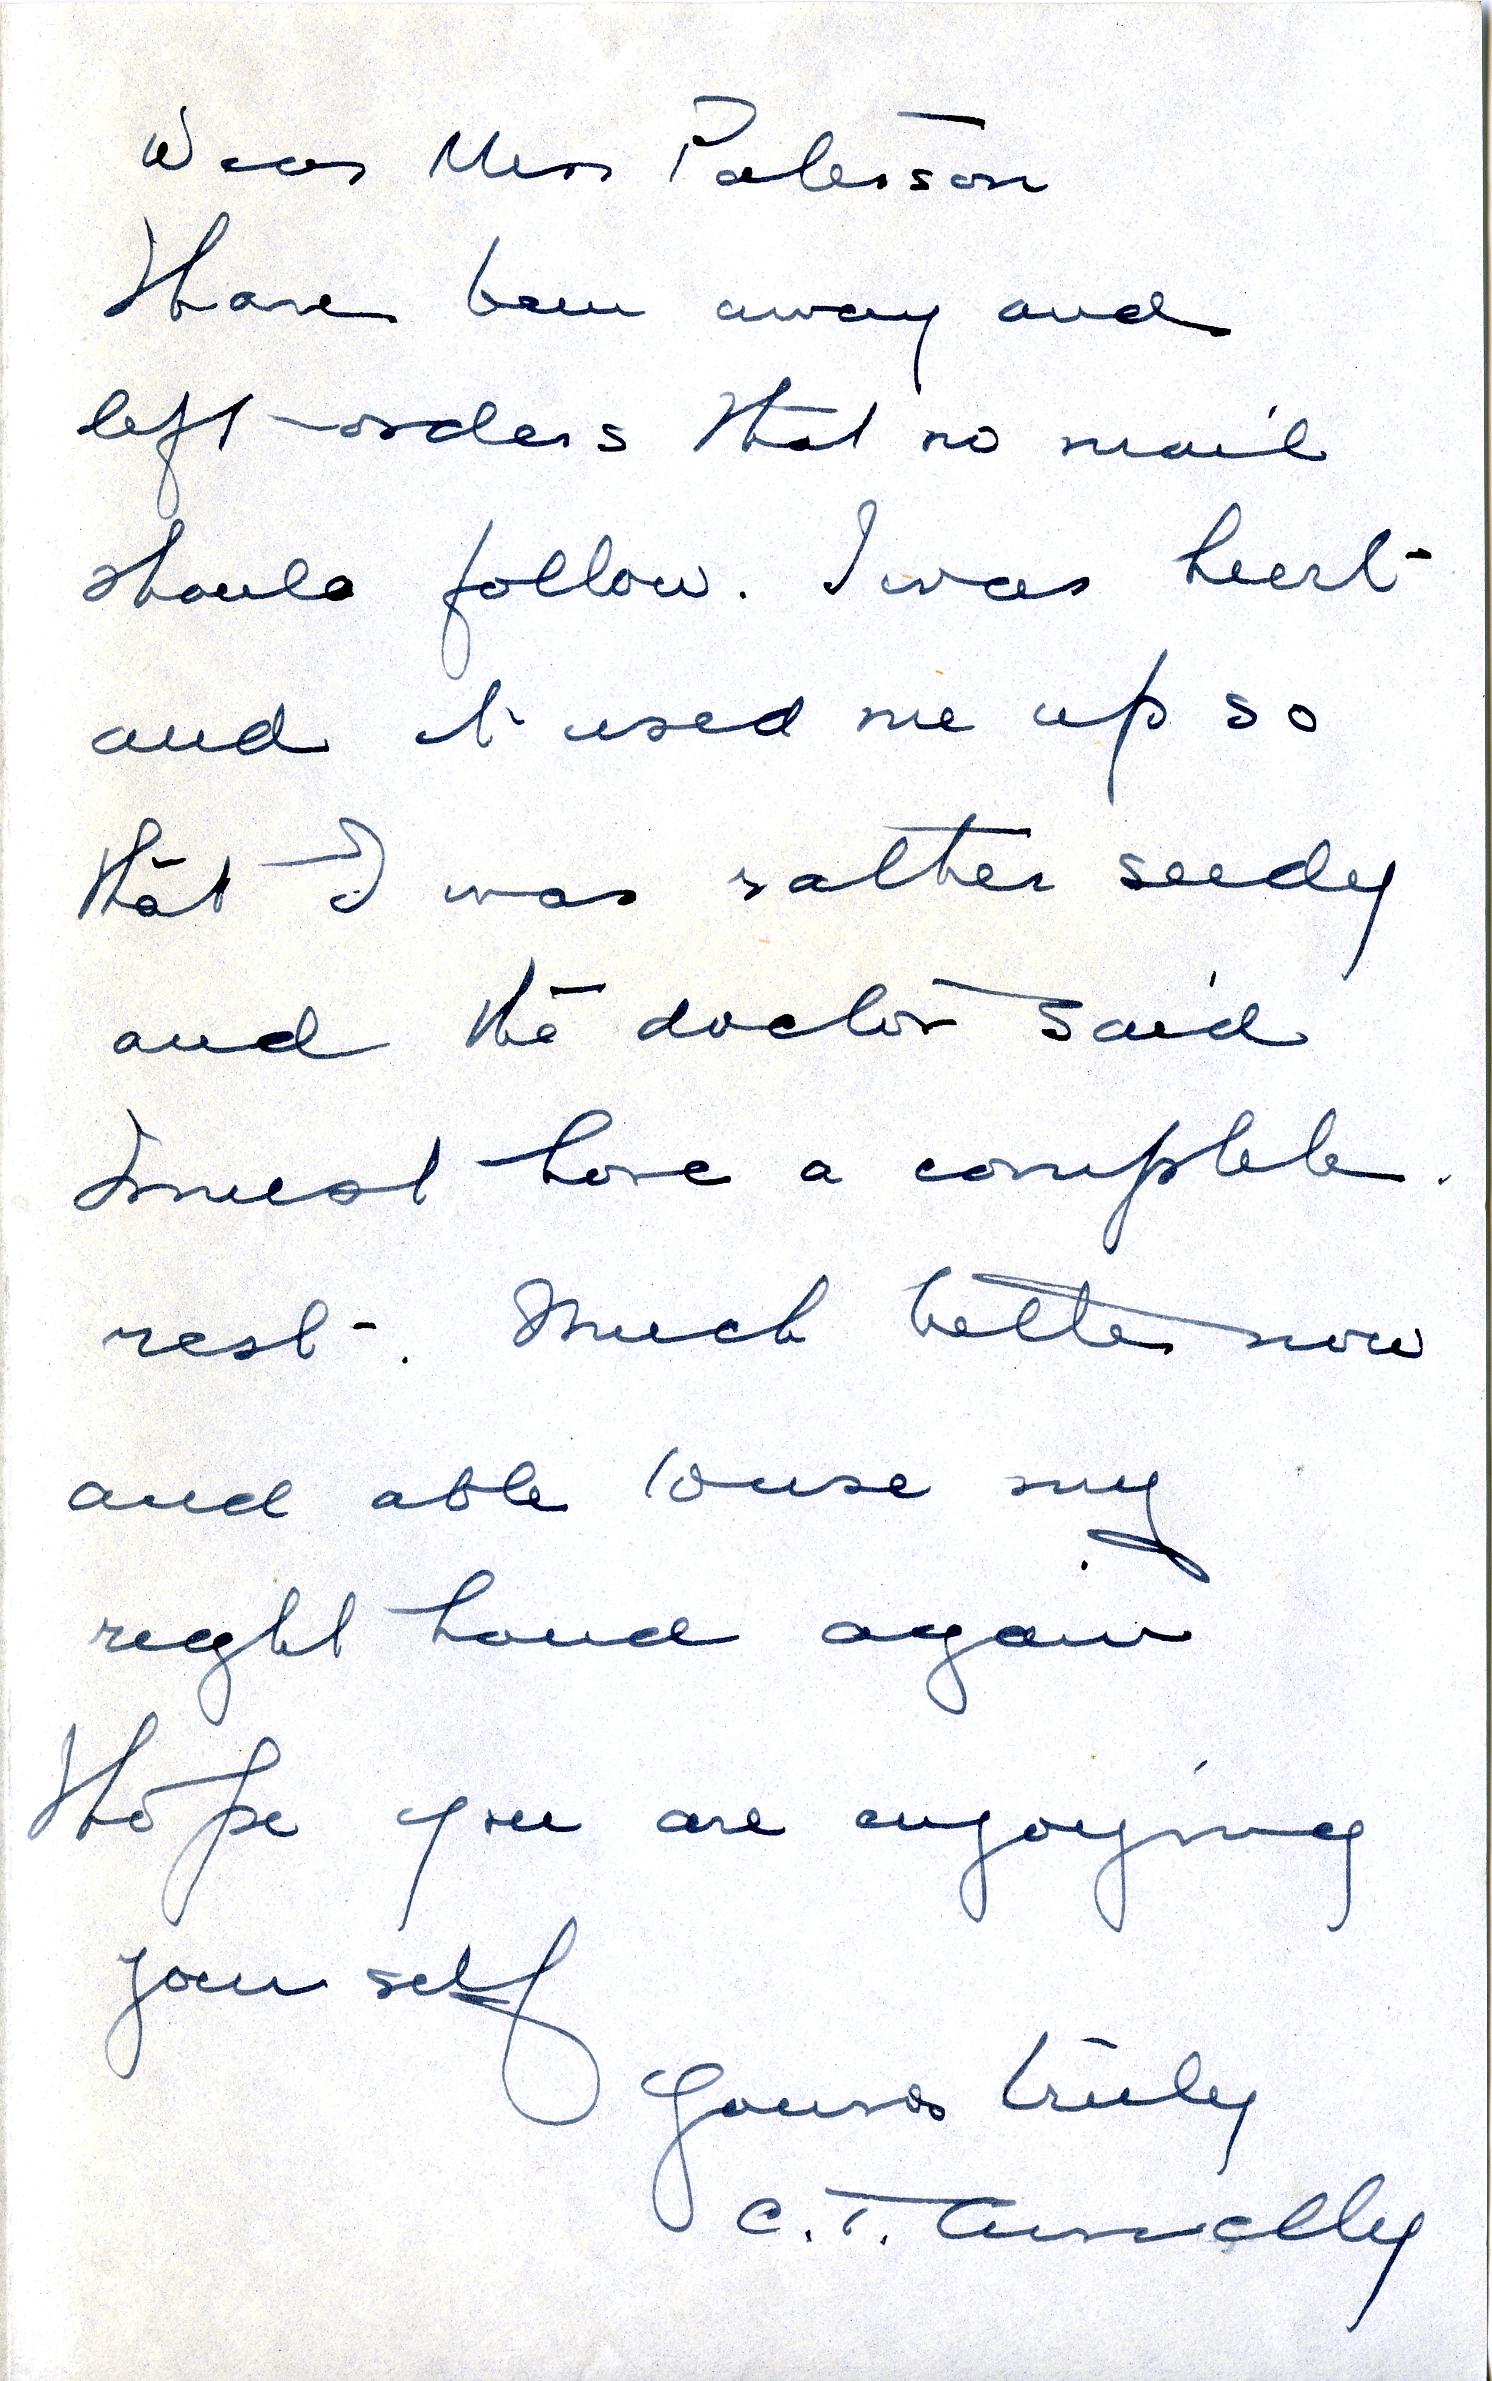 Dear Miss Paterson
I have been away and
left orders that no mail
should follow. I was hurt
and it used me up so
that I was rather seedy
and the doctor said
I must have a complete
rest. Much better now
and able to use my
right hand again
I hope you are enjoying
yourself
Yours truly
C. T. Currelly